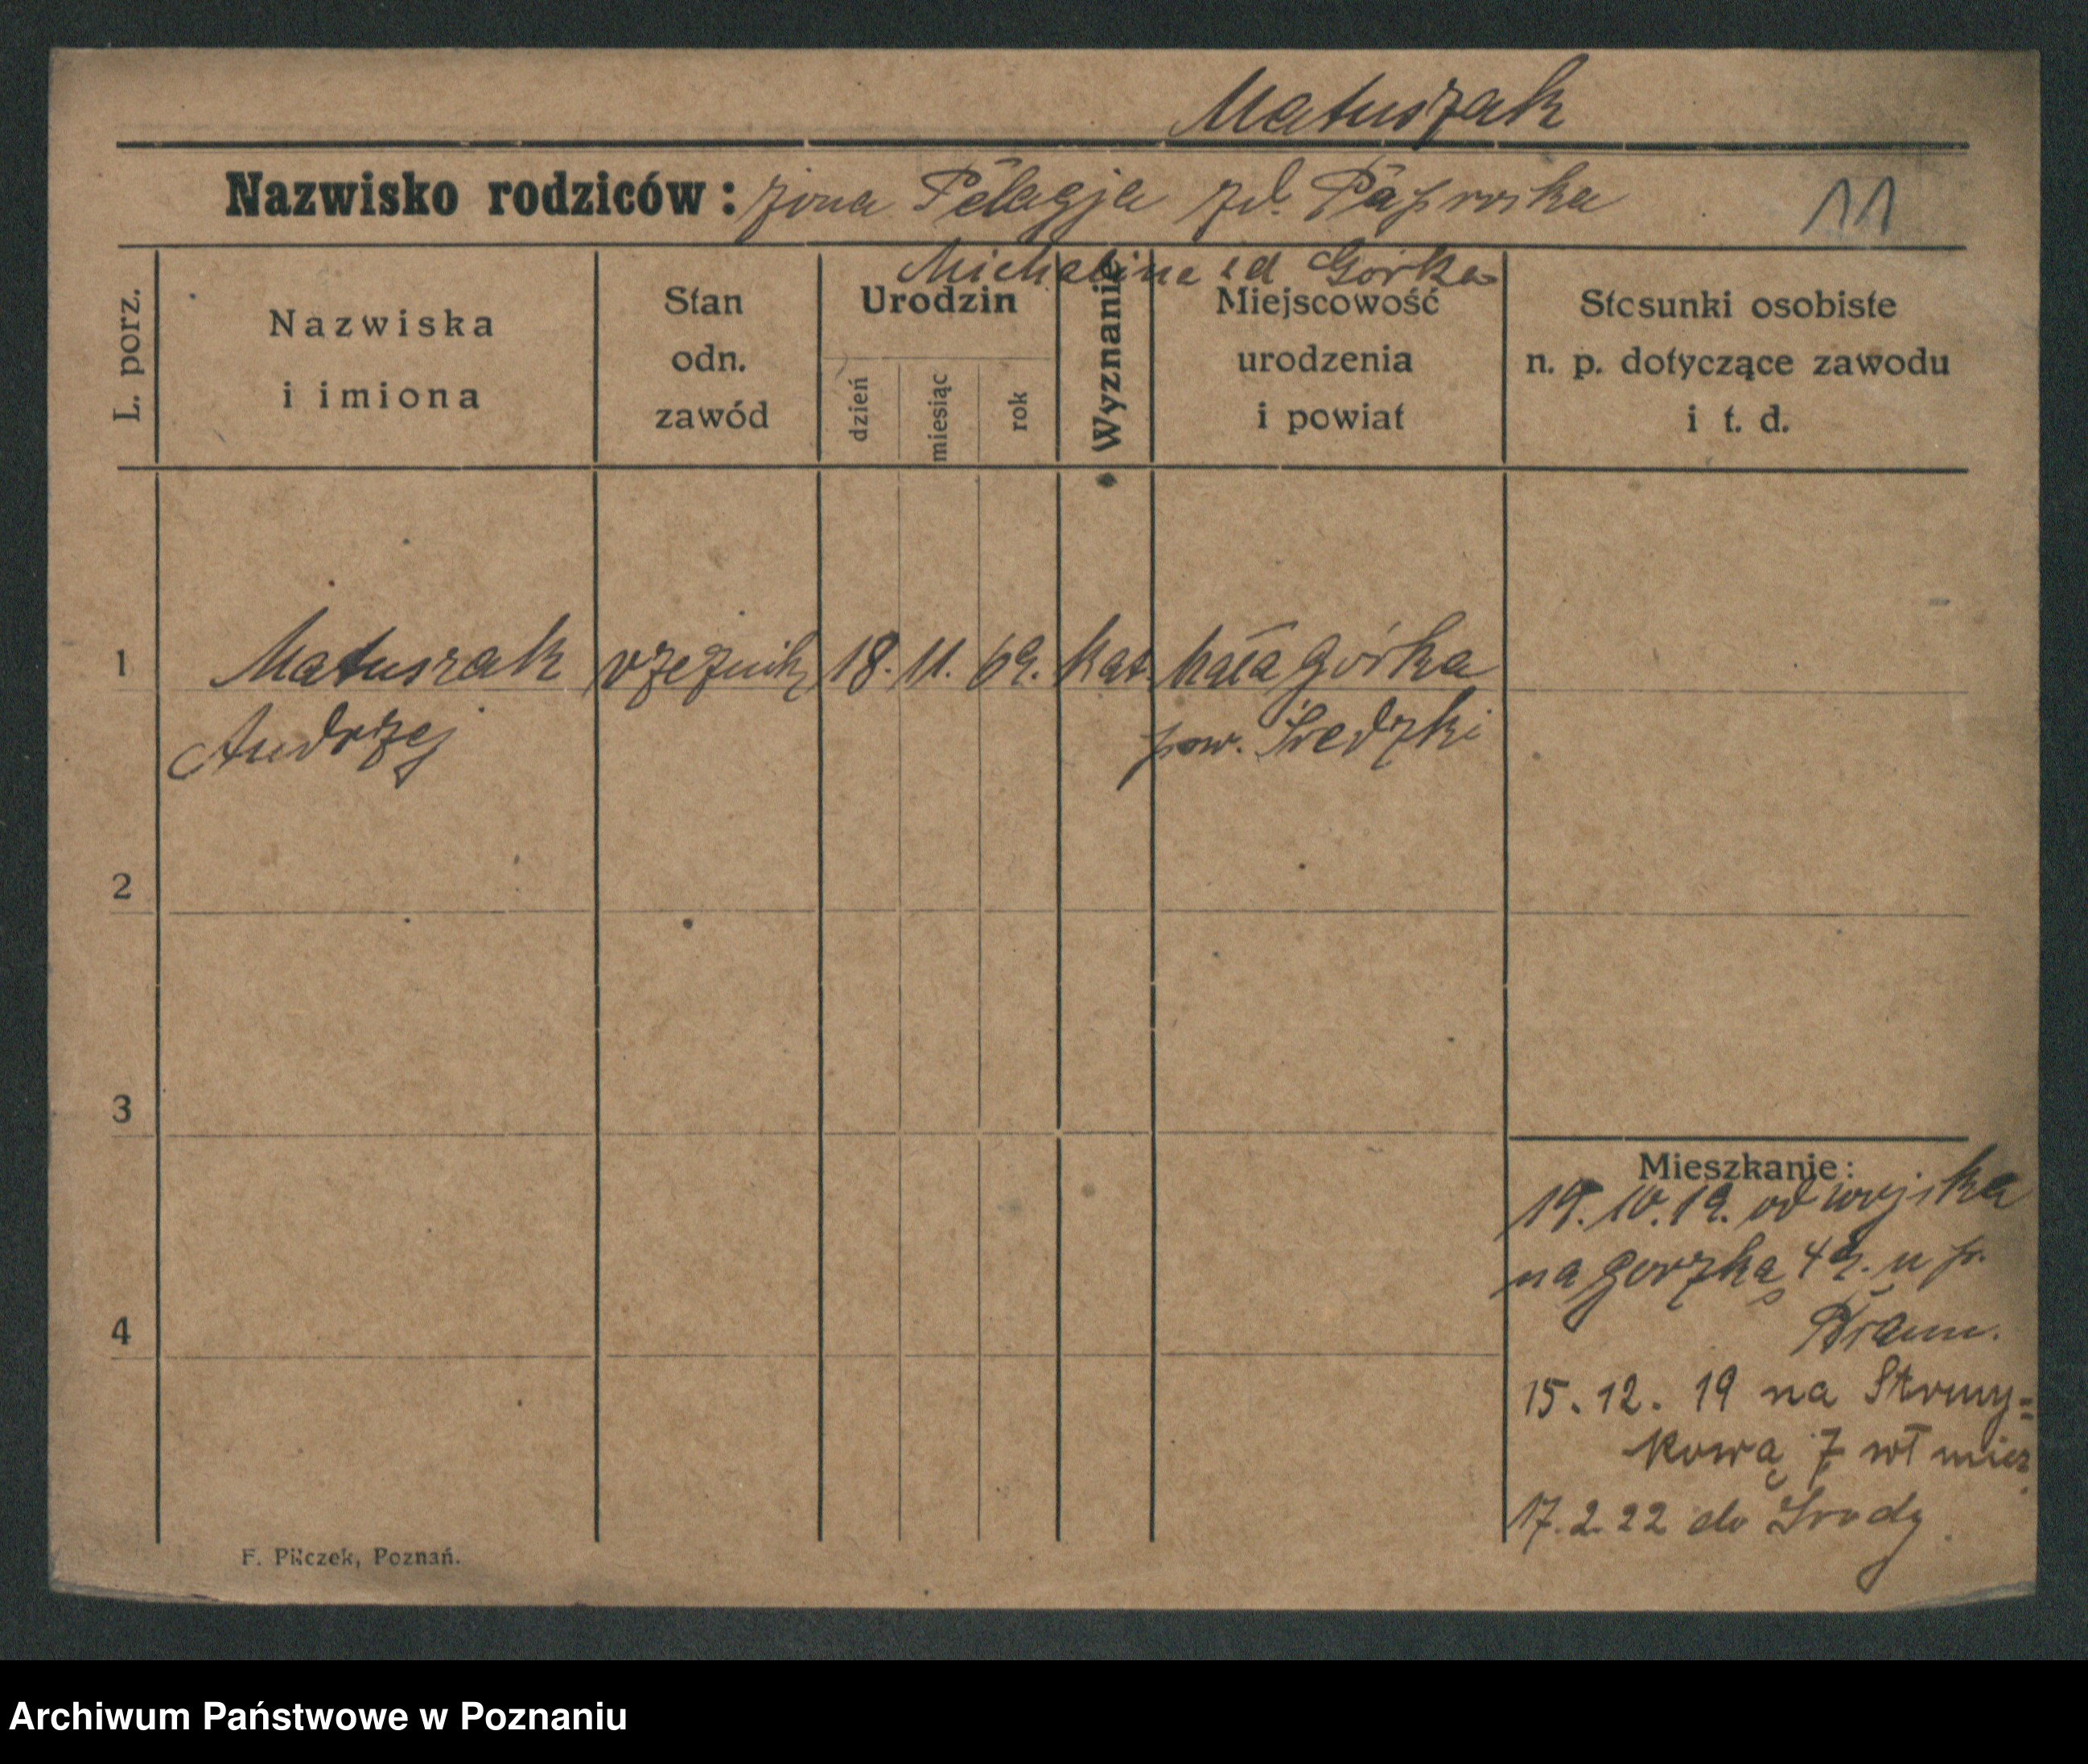 Matuszak
Nazwisko rodziców: żona Pelagja zd. Paprocka
Michalina zd Górka
11
L. porz.
Nazwiska
i imiona
Stan
odn.
zawód
Urodzin
dzień
miesiąc
rok
Wyznanie
Miejscowość
urodzenia
i powiat
Stosunki osobiste
n. p. dotyczące zawodu
i t. d.
1 Matuszak rzeźnik 18. 11. 69. kat. Mała górka
Andrzej pow. Średzki
2
3
4
Mieszkanie:
od wojska
na gorzką 49. u p.
15. 12. 19 na Strumy=
kową 7 wł miesz
17. 2. 22 do Środy.
F. Pilczek, Poznań.
Archiwum Państwowe w Poznaniu